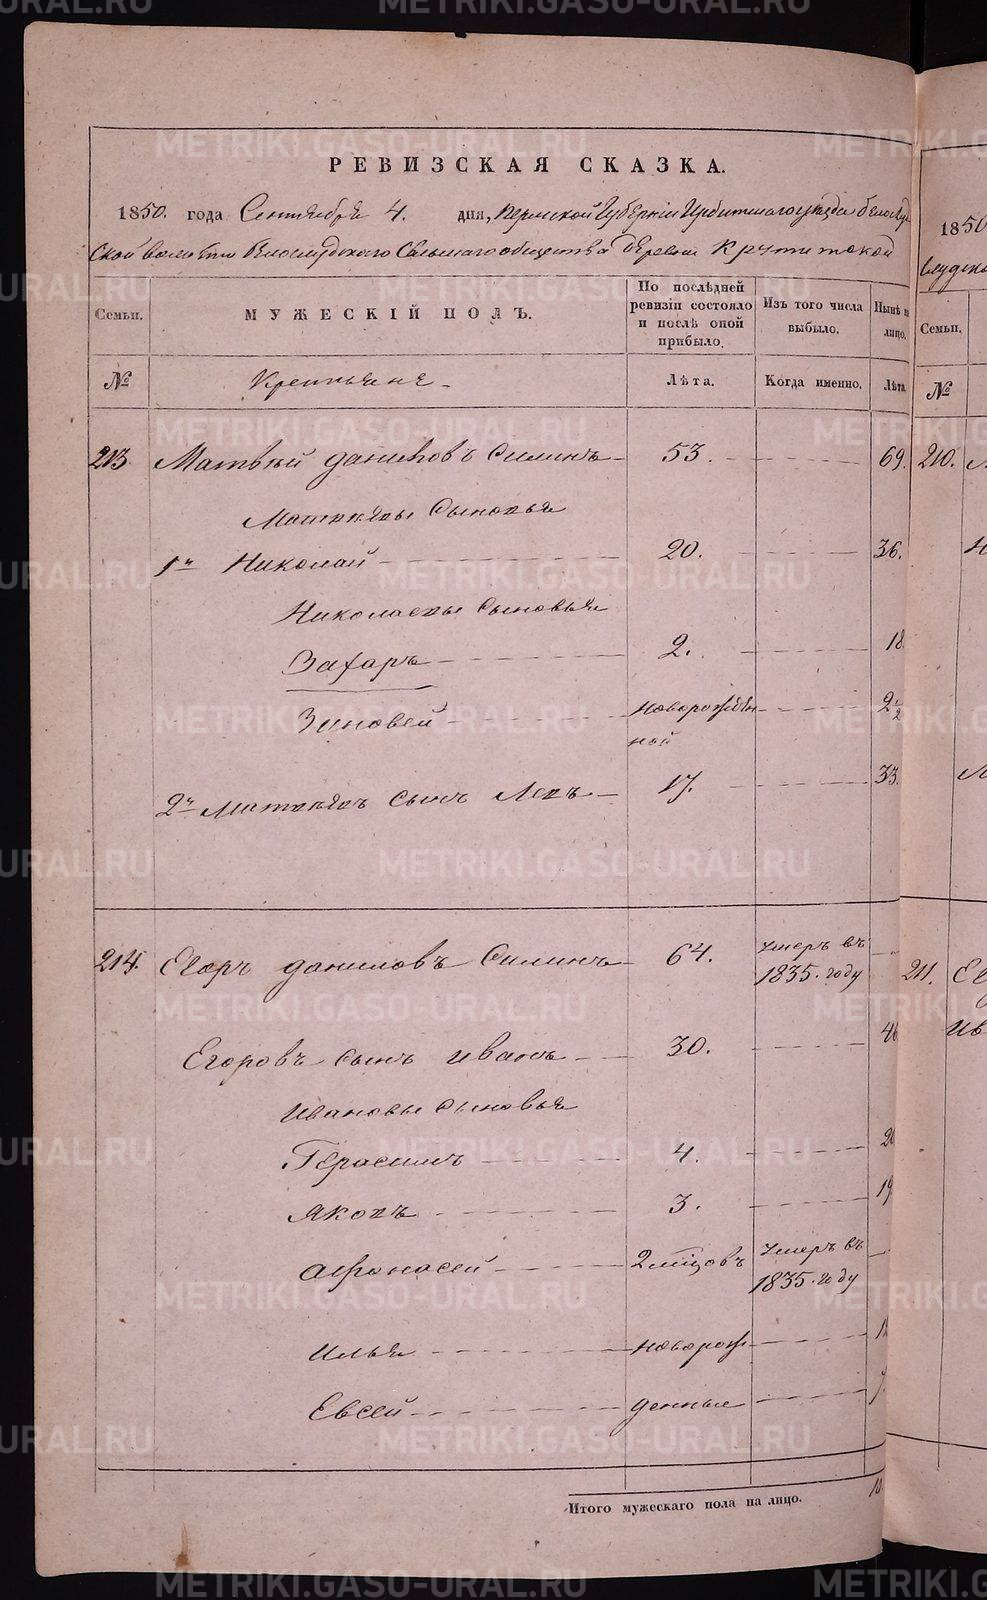 РЕВИЗСКАЯ СКАЗКА.
1850. года Сентября 4. дня, Пермской Губернiи Ирбитскаго уезда Белослуд
ской волости Белослудскаго Сельскаго общества деревни Крутитской
Семьи. МУЖЕСКІЙ ПОЛЪ. По послѣдней ревизіи состояло и послѣ оной прибыло. Изъ того числа выбыло. Нынѣ на лицо.
№ Крестьяне Лѣта. Когда именно. Лѣта.
213. Матвѣй Даниловъ Силинъ 53. 69.
Матвѣевы Сыновья
1й Николай 20. 36.
Николаевы Сыновья
Захаръ 2. 18.
Зиновей новорожден 2½
ной
2й Матвѣевъ сынъ Левъ 17. 33.
214. Егоръ Даниловъ Силинъ 64. умеръ въ
1835. году
Егоровъ сынъ Иванъ 30. 46
Ивановы сыновья
Герасимъ 4. 20
Яковъ 3. 19
Афонасей 2 мѣсцовъ умеръ въ
1835. году
Илья новорож
Евсей денные
Итого мужескаго пола на лицо. 10.
1850
влудско
Семьи.
№
210.
211. Ег
Ив
METRIKI.GASO-URAL.RU